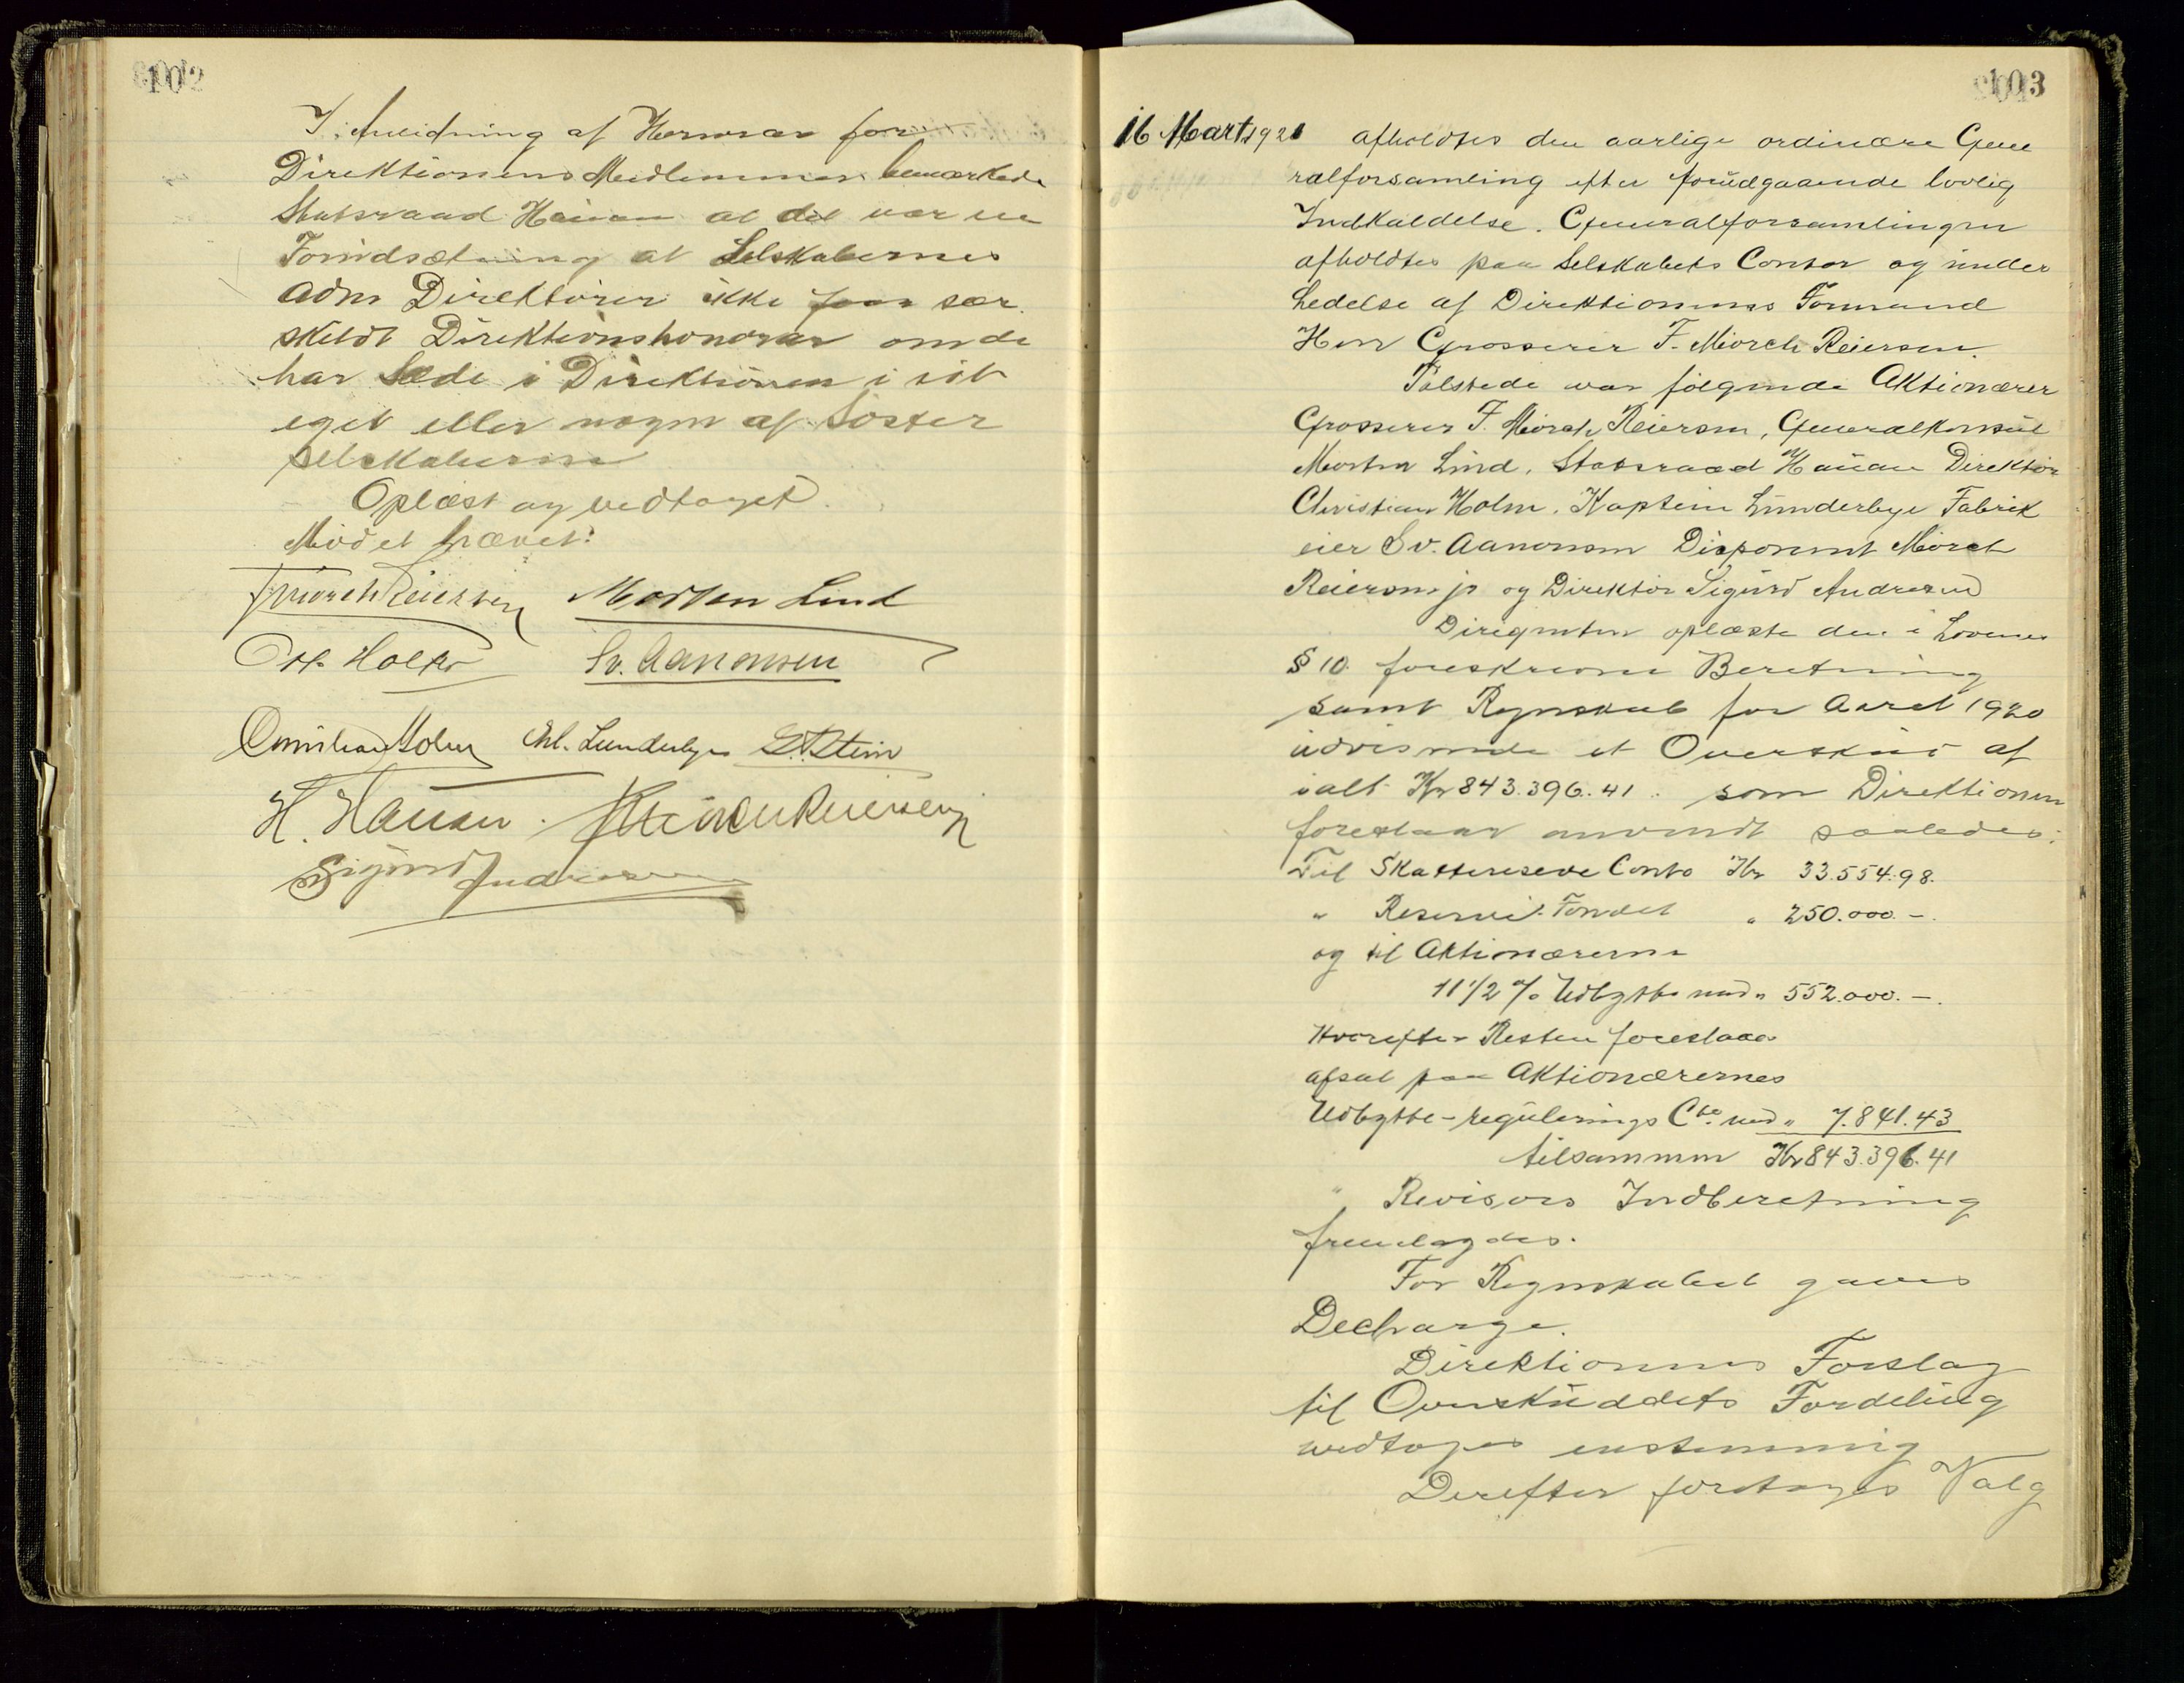 102
I Anledning af Honorar for
Direktionens Medlemmer bemærkede
Statsraad Hauan at det var en
Forudsætning at Selskabernes
Adm Direktører ikke faar sær
skildt Direktionshonorar om de
har Sæde i Direktionen i sit
eget eller nogen af Søster
selskaberne
Oplæst og vedtaget.
Mødet hævet:
F Mørch Reiersen Morten Lind
Holst Sv. Aanonsen
Christian Holm Chl. Lunderbye Stein
H. Hauan. F Mørch Reiersen jr
Sigurd Andresen
103
16 Marts 1921 afholdtes den aarlige ordinære Gene
ralforsamling efter forudgaaende lovlig
Indkaldelse. Generalforsamlingen
afholdtes paa Selskabets Contor og under
Ledelse af Direktionens Formand
Herr Grosserer F. Mørch Reiersen.
Tilstede var følgende Aktionærer
Grosserer F. Mørch Reiersen, Generalkonsul
Morten Lind, Statsraad Hauan Direktør
Christian Holm, Kaptein Lunderbye Fabrik
eier Sv. Aanonsen Disponent Mørch
Reiersen jr og Direktør Sigurd Andresen
Dirigenten oplæste den i Lovenes
§ 10. foreskrevne Beretning
samt Regnskab for Aaret 1920
udvisende et Overskud af
ialt Kr 843.396.41. som Direktionen
foreslaar anvendt saaledes:
Til Skattereserve Conto Kr 33.554.98.
" Reserve Fondet " 250.000.-.
og til Aktionærerne
11 1/2 % Udbytte med " 552.000.-.
Hvorefter Resten foreslaaes
afsat paa Aktionærernes
Udbytte-regulerings Cto. med " 7.841.43
tilsammen Kr 843.396.41
" Revisors Indberetning
fremlagdes.
For Regnskabet gaves
Decharge.
Direktionens Forslag
til Overskuddets Fordeling
vedtoges enstemmig
Derefter foretoges Valg